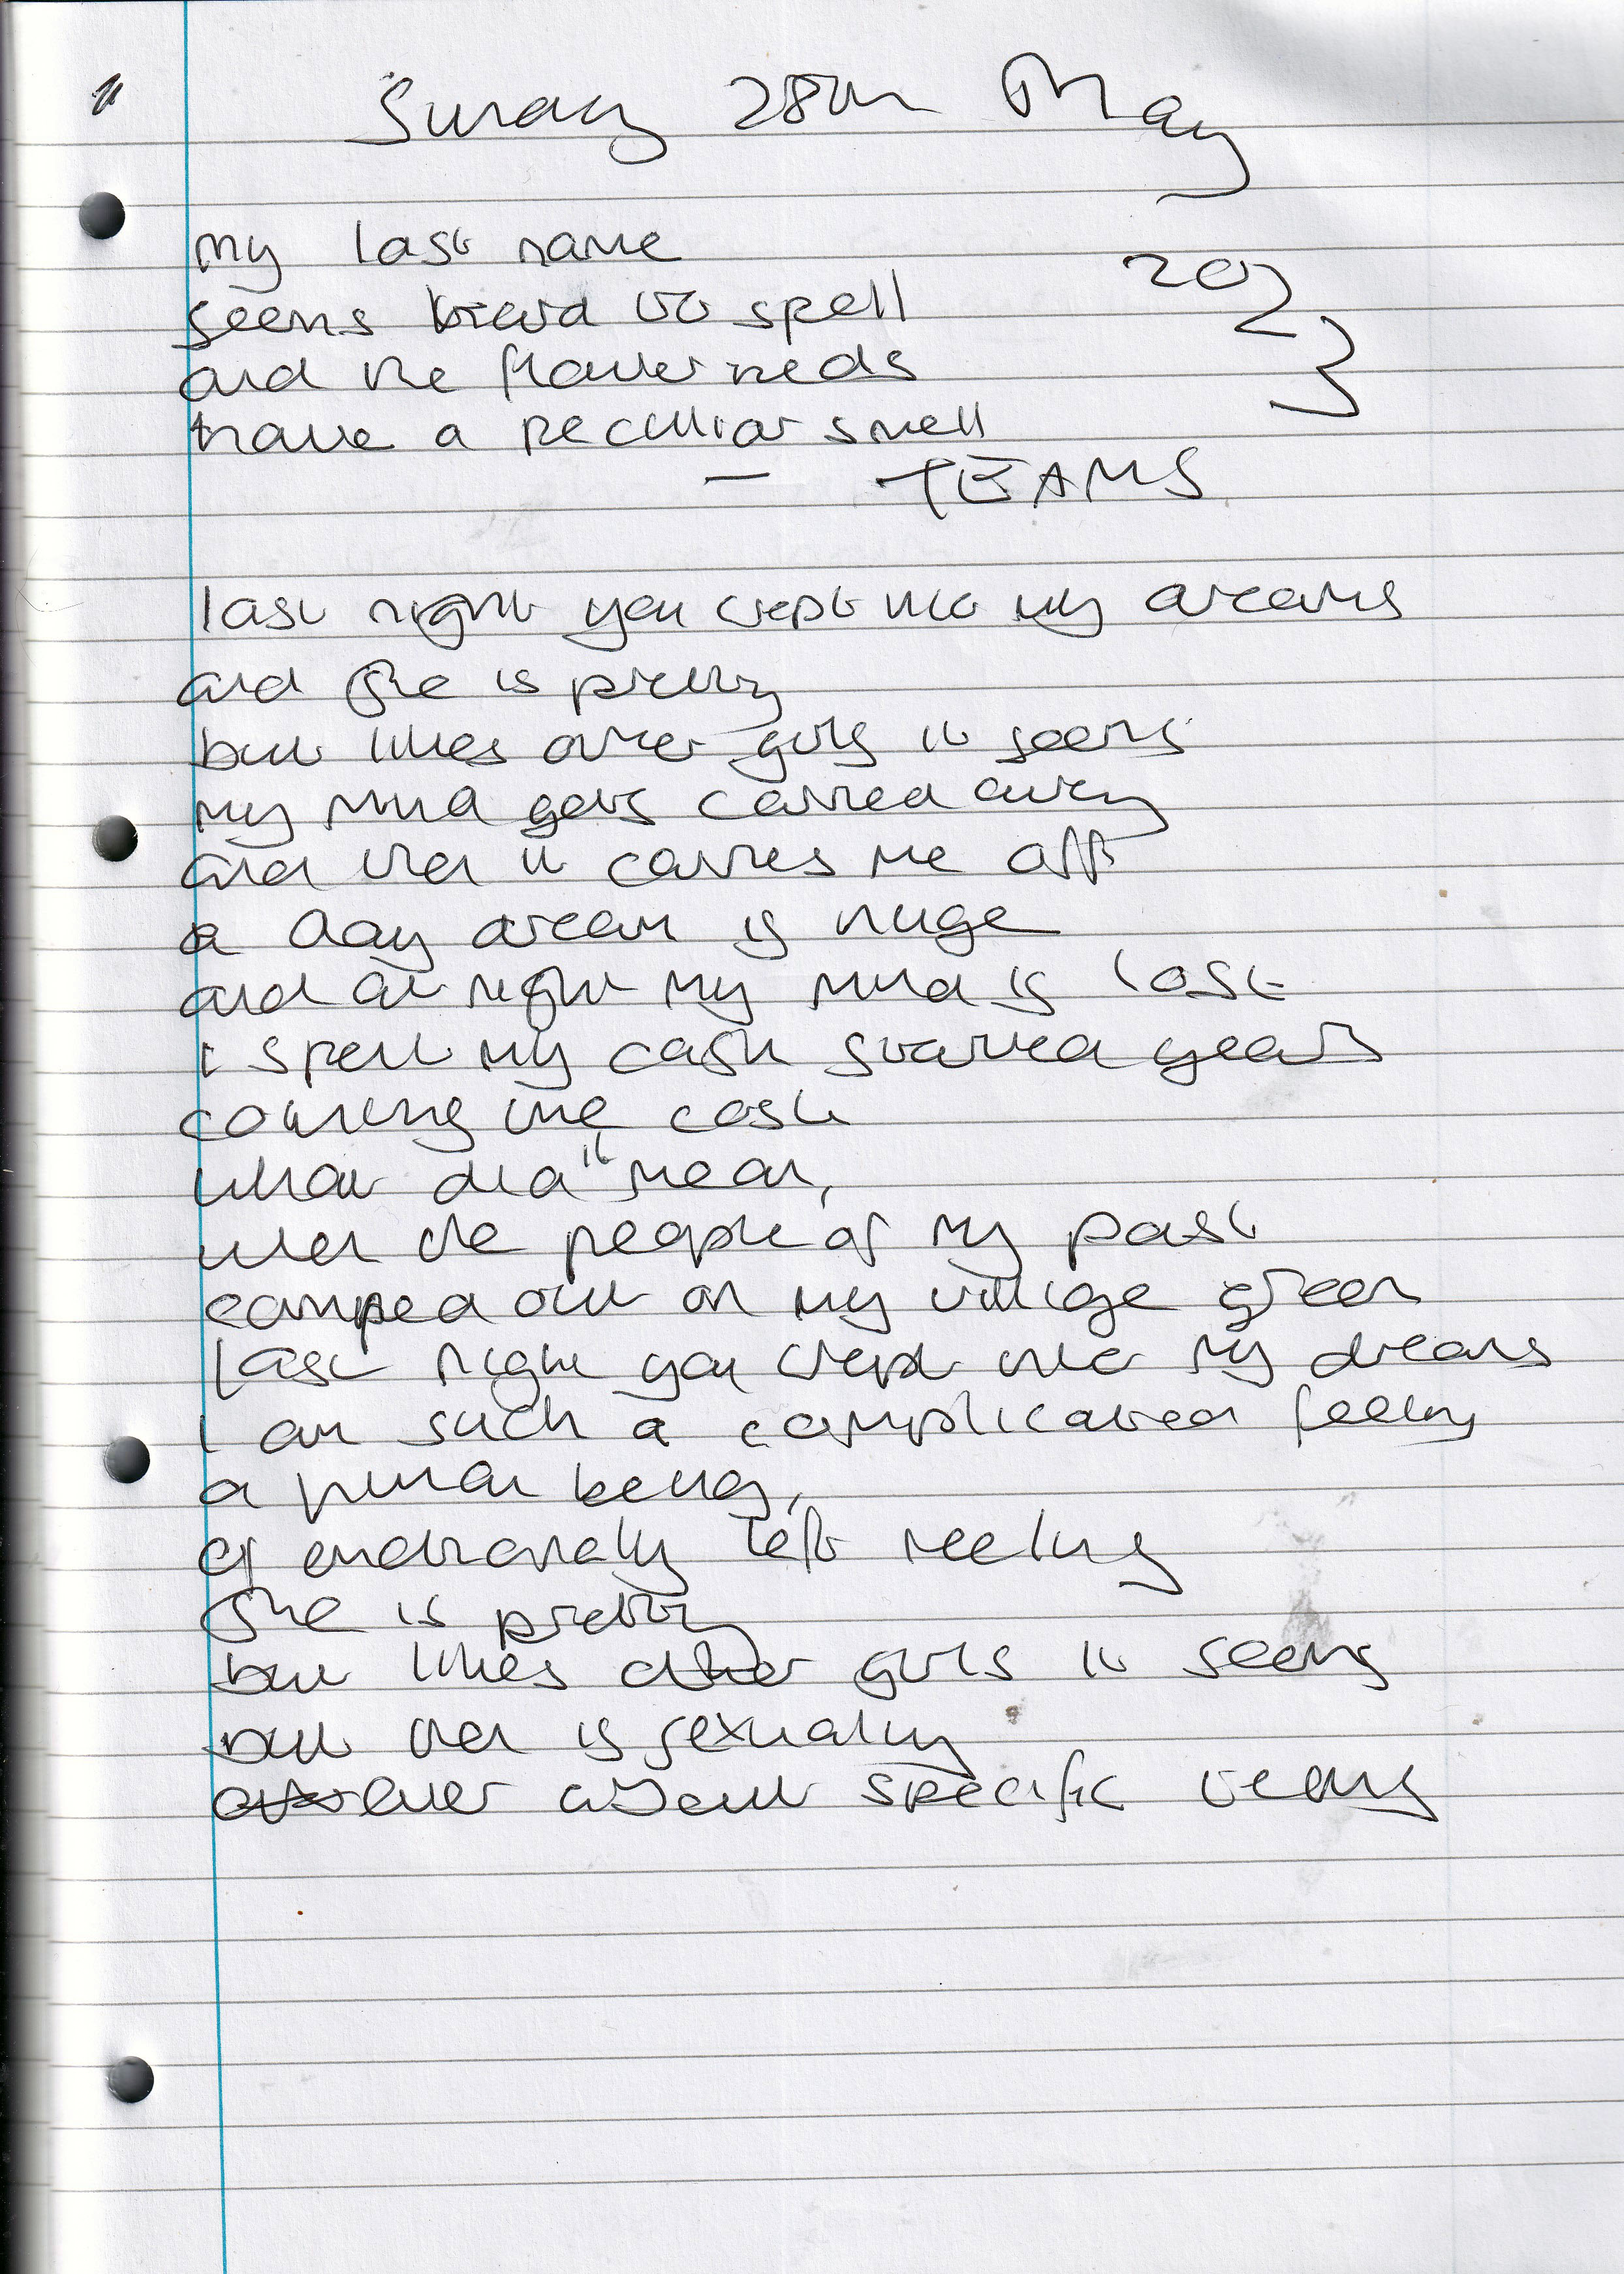 Sunday 28th May
2023
my last name
seems hard to spell
and the flower beds
have a peculiar smell
— TEAMS
last night you crept into my dreams
and she is pretty
but likes other girls it seems
my mind gets carried away
and then it carries me off
a day dream is huge
and at night my mind is lost
i spent my cash starved years
counting the cost
what did it mean,
when the people of my past
camped out on my village green
last night you crept into my dreams
I am such a complicated feeling
a human being,
of emotionally left reeling
she is pretty
but likes other girls it seems
but then is sexuality
ever about specific